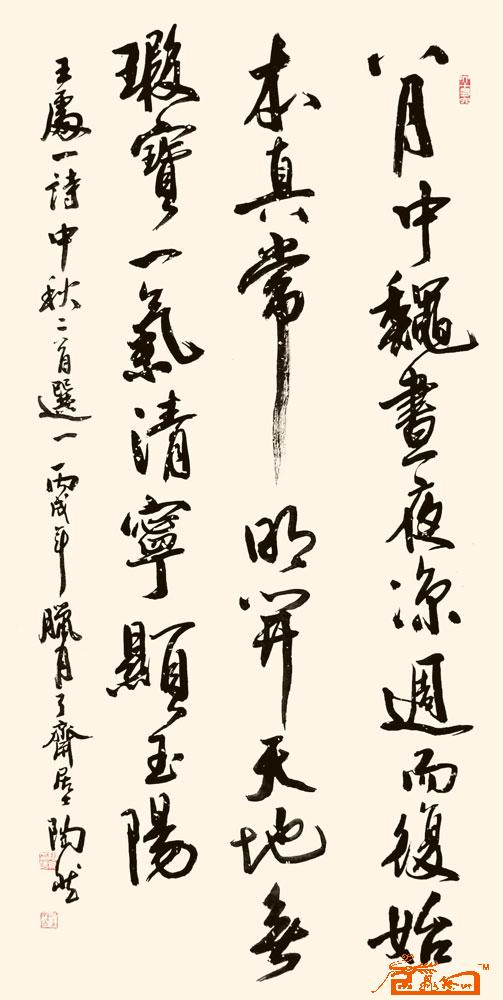 八月中龝晝夜凉週而復始
本真常明開天地無
瑕寶一氣清寧顯玉陽
王處一詩中秋二首選一 丙戌年臘月了齋居士陶然